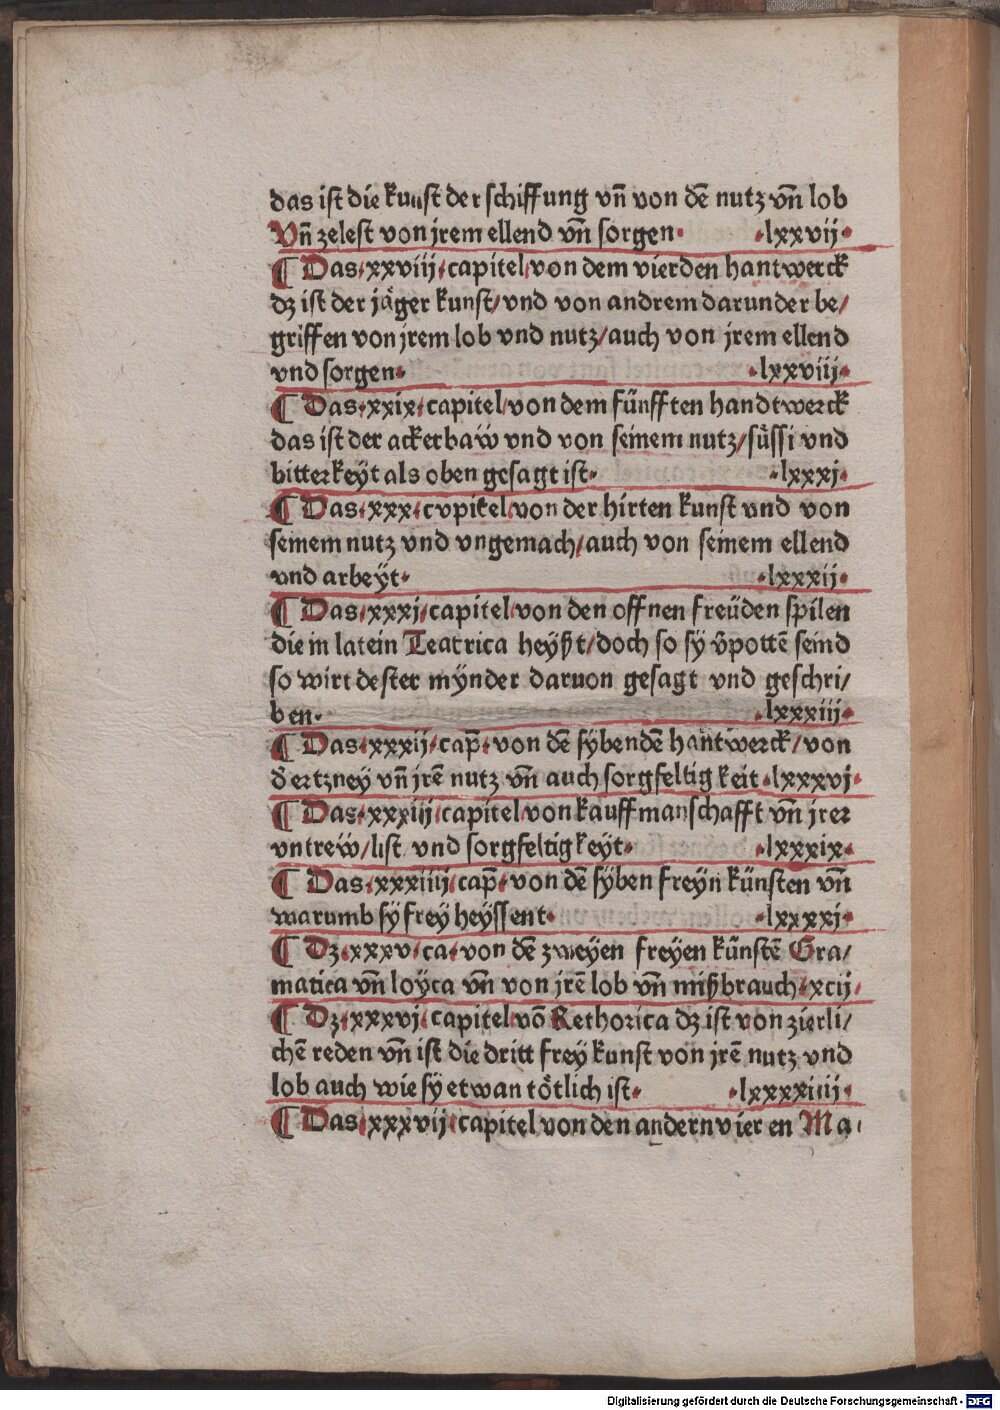 das ist die kunst der schiffung vn̄ von dē nutz vn̄ lob
Vn̄ zelest von jrem ellend vn̄ sorgen· ·lxxvij·
¶ Das·xxviij·capitel von dem vierden hantwerck
dz ist der jäger kunst/vnd von andrem darunder be/
griffen von jrem lob vnd nutz/auch von jrem ellend
vnd sorgen· ·lxxviij·
¶ Das·xxix·capitel von dem fünfften handtwerck
das ist der ackerbaw vnd von seinem nutz/süssi vnd
bitterkeÿt als oben gesagt ist· ·lxxxj·
¶ Das·xxx·cvpitel von der hirten kunst vnd von
seinem nutz vnd vngemach/auch von seinem ellend
vnd arbeÿt· ·lxxxij·
¶ Das·xxxj·capitel von den offnen freüden spilen
die in latein Teatrica heÿßt/doch so sÿ v̄pottē seind
so wirt dester mÿnder daruon gesagt vnd geschri/
ben· ·lxxxiij·
¶ Das·xxxij·cap̄·von dē sÿbendē hantwerck/von
d̄ ertzneÿ vn̄ jrē nutz vn̄ auch sorgfeltigkeit·lxxxvj·
¶ Das·xxxiij·capitel von kauffmanschafft vn̄ jrer
vntrew/list vnd sorgfeltigkeÿt· ·lxxxix·
¶ Das·xxxiiij·cap̄·von dē sÿben freÿn künsten vn̄
warumb sÿ freÿ heÿssent· ·lxxxxj·
¶ Dz·xxxv·ca·von dē zweÿen freÿen künstē Gra/
matica vn̄ loÿca vn̄ von jrē lob vn̄ mißbrauch·xcij·
¶ Dz·xxxvj·capitel vō Rethorica dz ist von zierli/
chē reden vn̄ ist die dritt freÿ kunst von jrē nutz vnd
lob auch wie sÿ etwan tötlich ist· ·lxxxxiiij·
¶ Das·xxxvij·capitel von den andern vieren Ma/
Digitalisierung gefördert durch die Deutsche Forschungsgemeinschaft - DFG